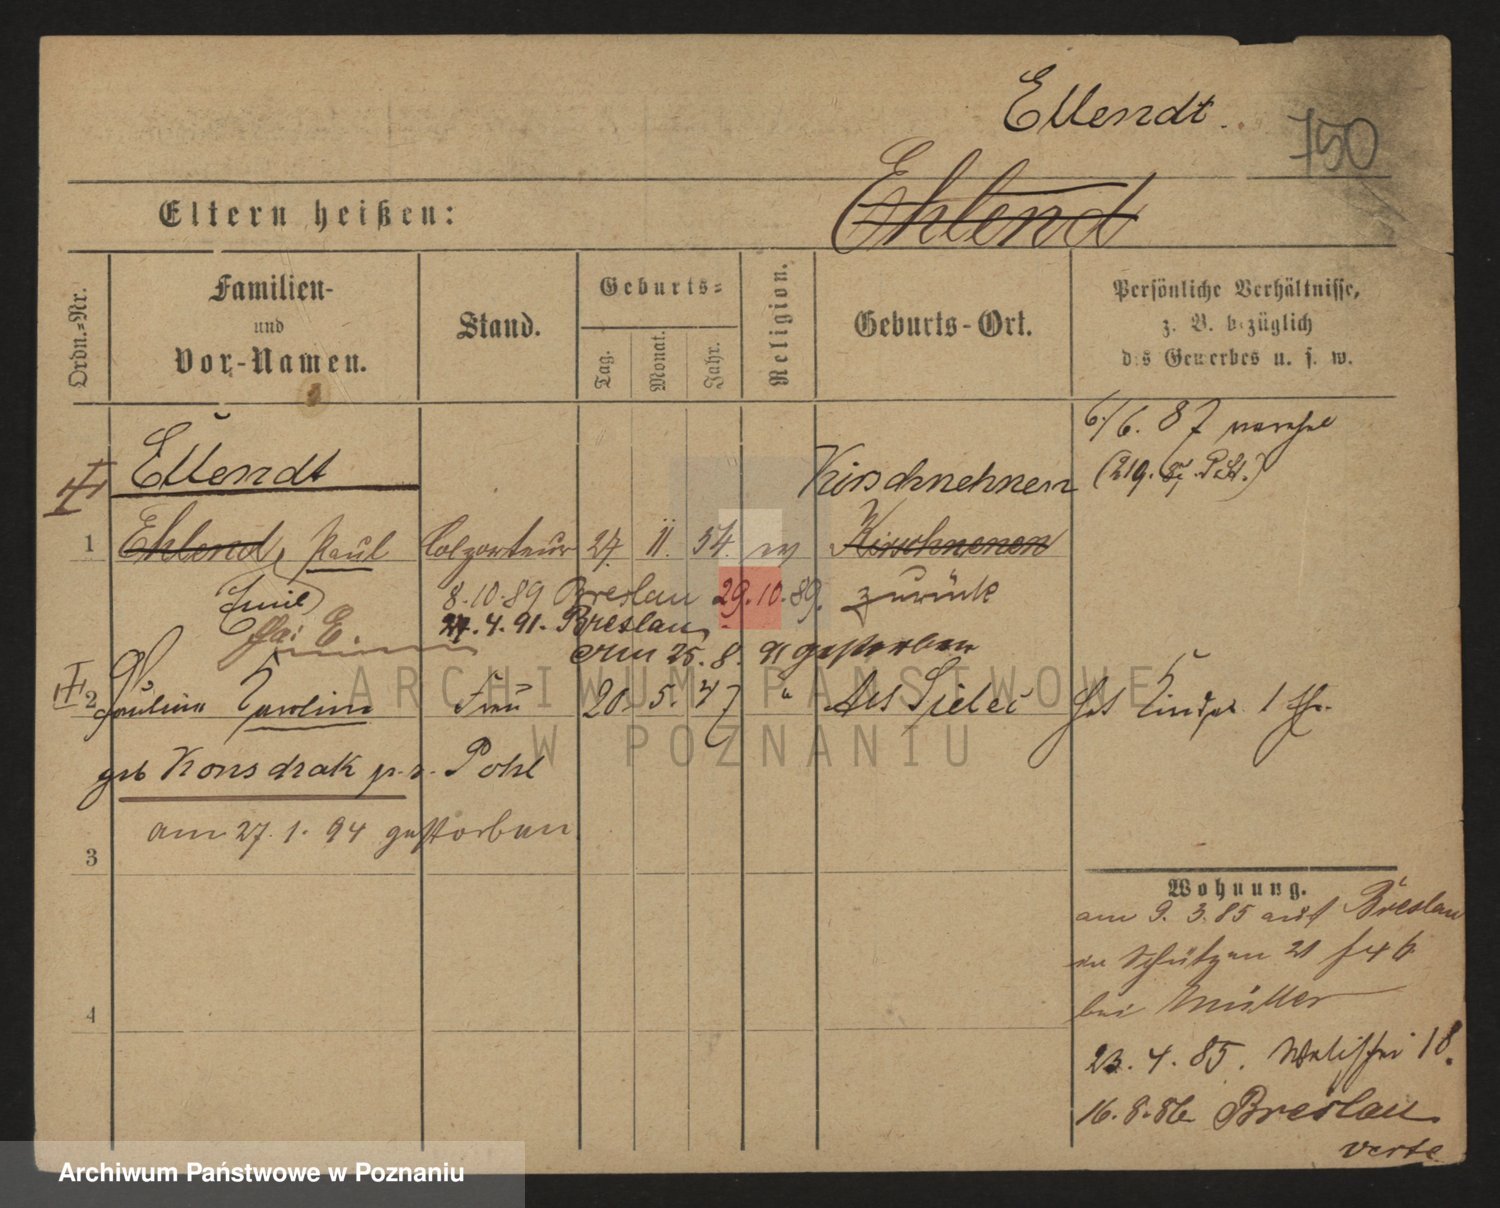 Ellendt.
750
Eltern heißen:
Ehlend
Ordn.=Nr.
Familien-
und
Vor-Namen.
Stand.
Geburts=
Tag.
Monat.
Jahr.
Religion.
Geburts-Ort.
Persönliche Verhältnisse,
z. B. bezüglich
des Gewerbes u. s. w.
6/6. 87
Ellendt
Kirschnehnen
1 Ehlend, Paul Colporteur 27. 11. 54. ev Kirschnenen
Emil
8.10.89 Breslau 29.10.89. zurück
27.4.91. Breslau
E.
am 25. 8. 91 gestorben
2 Paulina Karolina Frau 20. 5. 47 "
geb Konsdrak Pohl
am 27. 1. 94 gestorben
3
Wohnung.
am 9. 3. 85 aus Breslau
Schützen 21
bei Müller
4
23. 4. 85. Wallischei 18.
16.8.86 Breslau
verte
ARCHIWUM PAŃSTWOWE
W POZNANIU
Archiwum Państwowe w Poznaniu